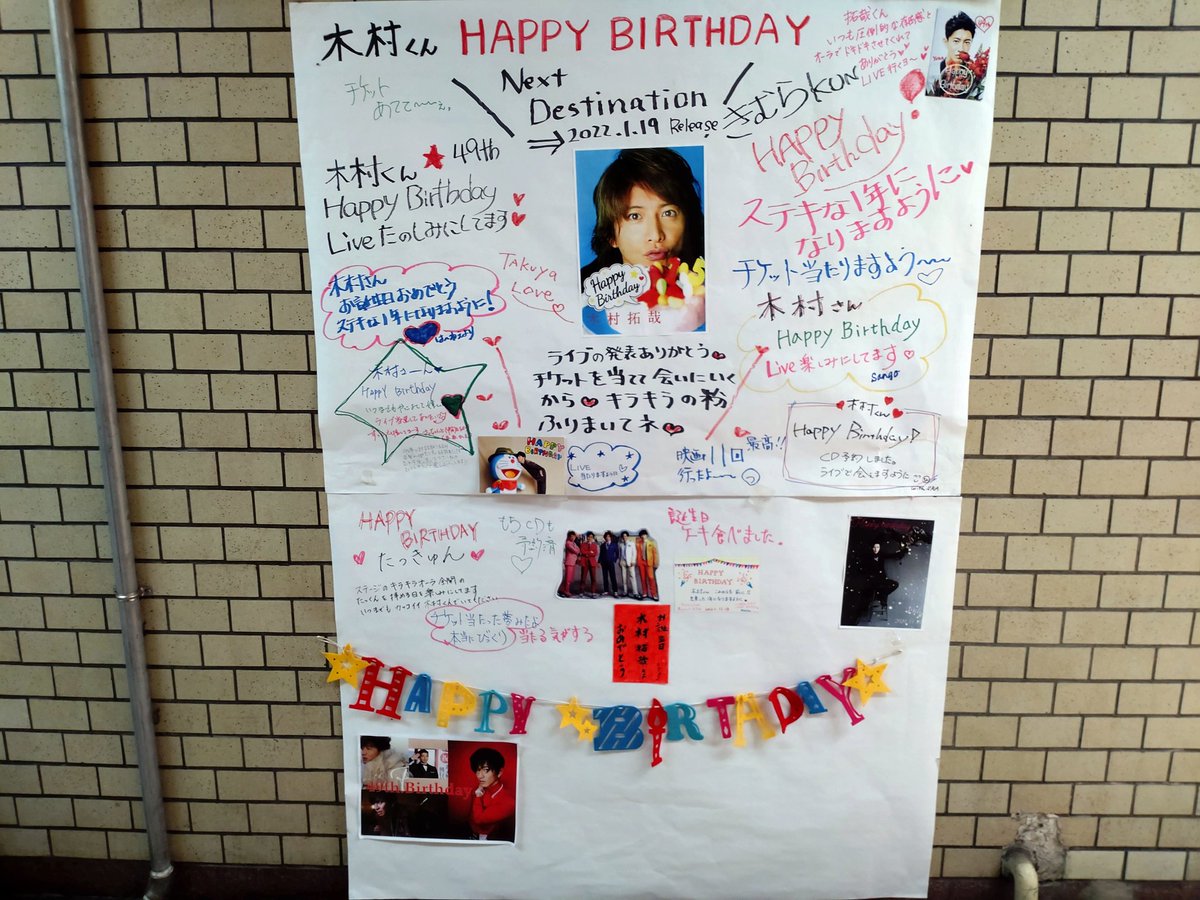 木村くん HAPPY BIRTHDAY
拓哉くん
いつも圧倒的な存在感と
オーラでドキドキさせてくれて
ありがとう
LIVE行くヨ〜
チケット
あてて〜〜ぇ。
Next
Destination
⇒ 2022.1.19 Release
きむらKUN
HAPPY
Birthday
木村くん ★ 49th
Happy Birthday
Live たのしみにしてます
ステキな1年に
なりますように
チケット当たりますよう〜〜
TAKUYA
Love
Happy
Birthday
村拓哉
木村さん
お誕生日おめでとう
ステキな1年になりますように!
木村さん
Happy Birthday
Live 楽しみにしてます
sango
ライブの発表ありがとう
チケットを当てて会いにいく
から キラキラの粉
ふりまいてネ
Happy Birthday
木村くん
Happy Birthday
CD予約しました。
ライブで会えますように
HAPPY
BIRTHDAY
LIVE
当たりますように
映画11回
行ったよ〜〜
最高!!
HAPPY
BIRTHDAY
たっきゅん
ステージのキラキラオーラ全開の
たっくんを拝める日を楽しみにしてます
もうCDも
予約済
誕生日
ケーキ食べました。
HAPPY
BIRTHDAY
チケット当たった夢みたよ
本当にびっくり
当たる気がする
お誕生日
木村拓哉
おめでとう
HAPPY BIRTADIY
49th Birthday